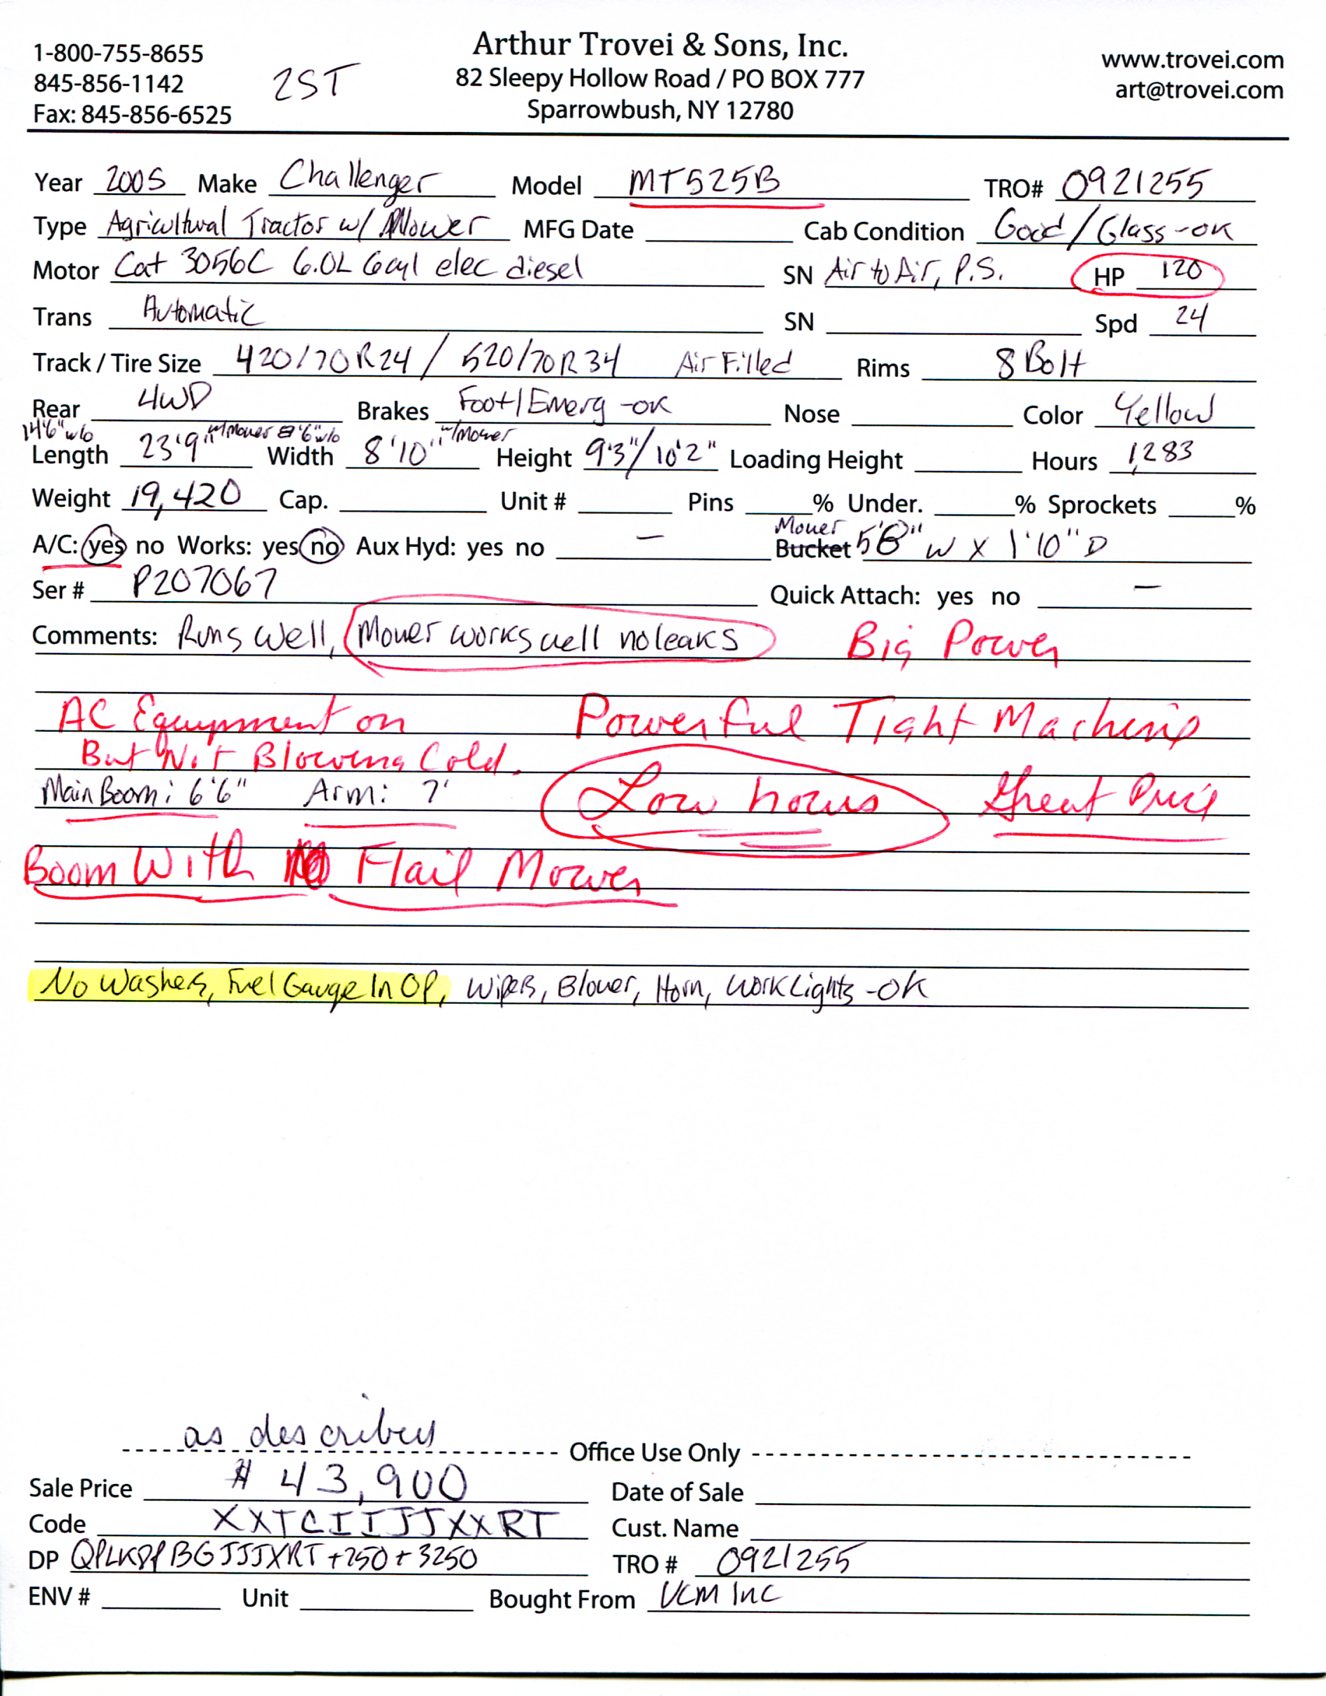 1-800-755-8655
845-856-1142
Fax: 845-856-6525
2ST
Arthur Trovei & Sons, Inc.
82 Sleepy Hollow Road / PO BOX 777
Sparrowbush, NY 12780
www.trovei.com
art@trovei.com
Year 2005 Make Challenger Model MT525B TRO# 0921255
Type Agricultural Tractor w/ Mower MFG Date Cab Condition Good/Glass-ok
Motor Cat 3056C 6.0L 6cyl elec diesel SN Air to Air, P.S. HP 120
Trans Automatic SN Spd 24
Track / Tire Size 420/70R24 / 520/70R34 Air Filled Rims 8 Bolt
Rear 4WD Brakes Foot/Emerg-ok Nose Color Yellow
14'6" w/o w/mower 8'6" w/o w/Mower
Length 23'9" Width 8'10" Height 9'3"/10'2" Loading Height Hours 1,283
Weight 19,420 Cap. Unit # Pins % Under. % Sprockets %
Mower
A/C: yes no Works: yes no Aux Hyd: yes no - Bucket 5'8" W X 1'10" D
Ser # P207067 Quick Attach: yes no -
Comments: Runs well, Mower works well no leaks Big Power
AC Equipment on Powerful Tight Machine
But Not Blowing Cold.
Main Boom: 6'6" Arm: 7' Low hours Great Price
Boom With Flail Mower
No Washers, Fuel Gauge In OP, Wipers, Blower, Horn, Work Lights-OK
as described
Office Use Only
Sale Price $43,900 Date of Sale
Code XXTCIIJJXXRT Cust. Name
DP QPLKPPBGJJJXRT+250+3250 TRO # 0921255
ENV # Unit Bought From VCM Inc